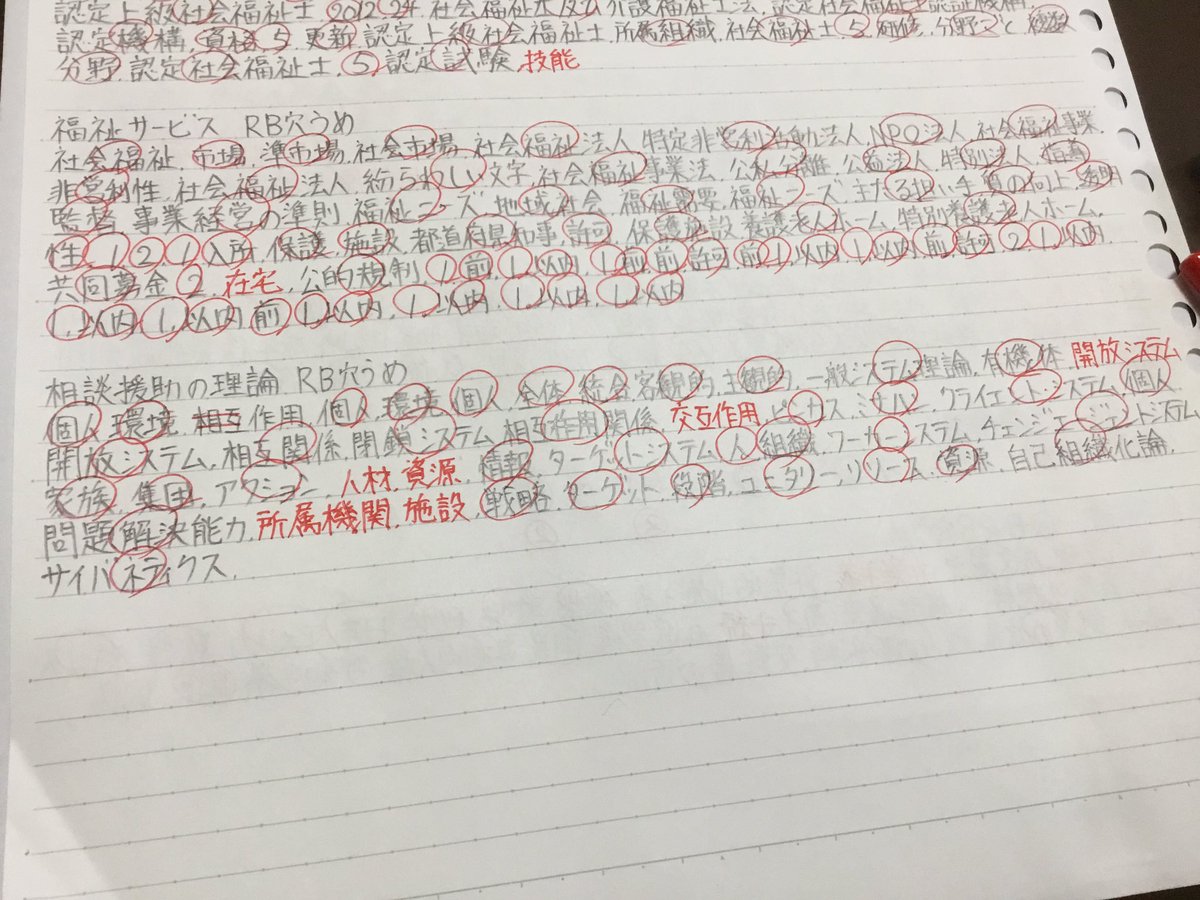 認定上級社会福祉士. 2012(24). 社会福祉士及び介護福祉士法. 認定社会福祉士認証機構.
認定機構. 資格. 5. 更新. 認定上級社会福祉士. 所属組織. 社会福祉士. 5. 研修. 分野ごと
分野. 認定社会福祉士. 5. 認定試験. 技能
福祉サービス RB穴うめ
社会福祉. 市場. 準市場. 社会市場. 社会福祉法人. 特定非営利活動法人. NPO法人. 社会福祉事業.
非営利性. 社会福祉法人. 紛らわしい文字. 社会福祉事業法. 公私分離. 公益法人. 特別法人. 指導
監督. 事業経営の準則. 福祉ニーズ. 地域社会. 福祉需要. 福祉ニーズ. 主たる担い手. 質の向上. 透明
性. 1. 2. 1. 入所. 保護. 施設. 都道府県知事. 許可. 保護施設. 養護老人ホーム. 特別養護老人ホーム.
共同募金. 2. 在宅. 公的規制. 1. 前. 1. 以内. 1. 前. 前. 許可. 前. 1. 以内. 1. 以内. 前. 許可. 2. 1. 以内.
1. 以内. 1. 以内. 前. 1. 以内. 1. 以内. 1. 以内. 1. 以内
相談援助の理論 RB穴うめ
個人. 環境. 相互作用. 個人. 環境. 個人. 全体. 統合. 客観的. 主観的. 一般システム理論. 有機体. 開放システム
開放システム. 相互関係. 閉鎖システム. 相互作用関係. 交互作用. ピンカス. ミナハン. クライエントシステム. 個人
家族. 集団. アクション. 人材. 資源. 情報. ターゲットシステム. 人. 組織. ワーカーシステム. チェンジエージェントシステム
問題解決能力. 所属機関. 施設. 戦略. ターゲット. 段階. ユーダリー. リソース. 資源. 自己組織化論.
サイバネティクス.